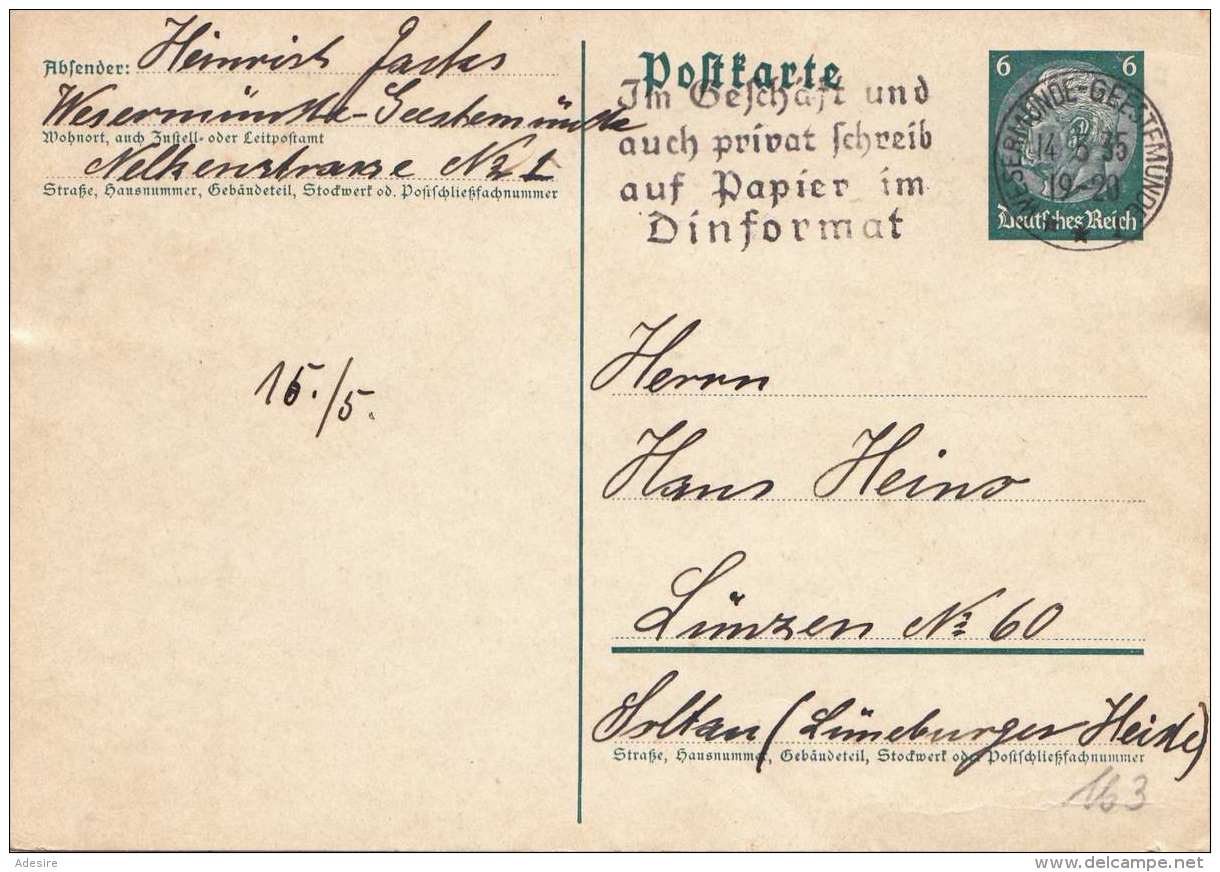 Absender: Heinrich
Wesermünde-Geestemünde
Wohnort, auch Zustell- oder Leitpostamt
Nelkenstrasse No 1
Straße, Hausnummer, Gebäudeteil, Stockwerk od. Postschließfachnummer
15./5.
Postkarte
Im Geschäft und
auch privat schreib
auf Papier im
Dinformat
6 6
Deutsches Reich
WESERMÜNDE-GEESTEMÜNDE
14 5 35
19-20
Herrn
Hans Heino
Lünzen No 60
Soltau (Lüneburger Heide)
Straße, Hausnummer, Gebäudeteil, Stockwerk oder Postschließfachnummer
163
Adesire
delcampe.net